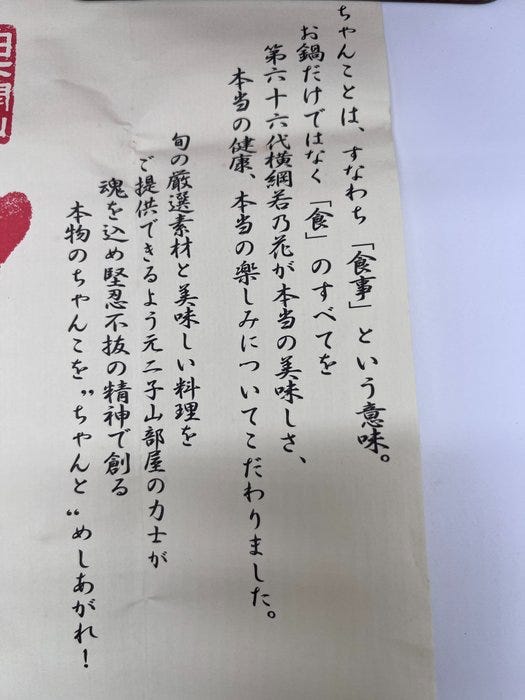 ちゃんことは、すなわち「食事」という意味。
お鍋だけではなく「食」のすべてを
第六十六代横綱若乃花が本当の美味しさ、
本当の健康、本当の楽しみについてこだわりました。
旬の厳選素材と美味しい料理を
ご提供できるよう元二子山部屋の力士が
魂を込め堅忍不抜の精神で創る
本物のちゃんこを〝ちゃんと〟めしあがれ!